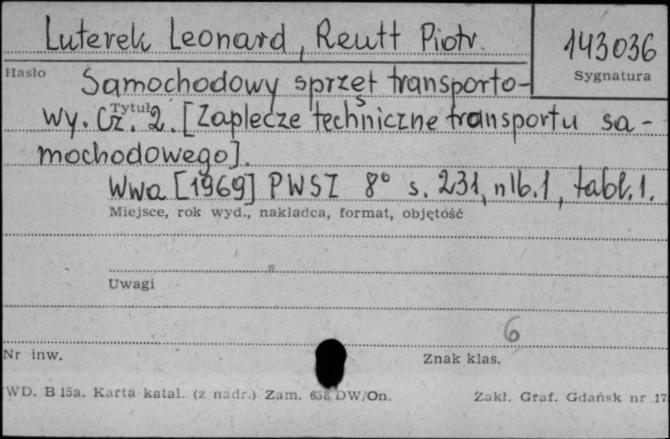 Luterek Leonard, Reutt Piotr.
143036
Hasło
Sygnatura
Samochodowy sprzęt transporto-
Tytuł
wy. Cz. 2. [Zaplecze techniczne transportu sa-
mochodowego].
Wwa [1969] PWSZ 8° s. 231, nlb. 1, tabl. 1.
Miejsce, rok wyd., nakładca, format, objętość
Uwagi
6
Nr inw.
Znak klas.
WD. B 15a. Karta katal. (z nadr.) Zam. DW/On.
Zakł. Graf. Gdańsk nr 17